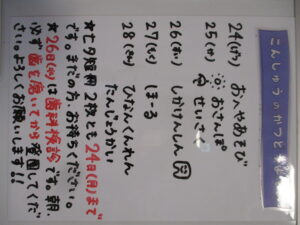 こんしゅうのかつどう
24(げつ) おへやあそび
25(か) おさんぽ
せいさく
26(すい) しかけんしん
27(もく) ほーる
28(きん) ひなんくんれん
たんじょうかい
★七夕短冊2枚とも24日(月)まで
です。まだの方、お持ちください。
★26日(水)は歯科検診です。朝、
必ず歯を磨いてから登園してくだ
さい。よろしくお願いします!!